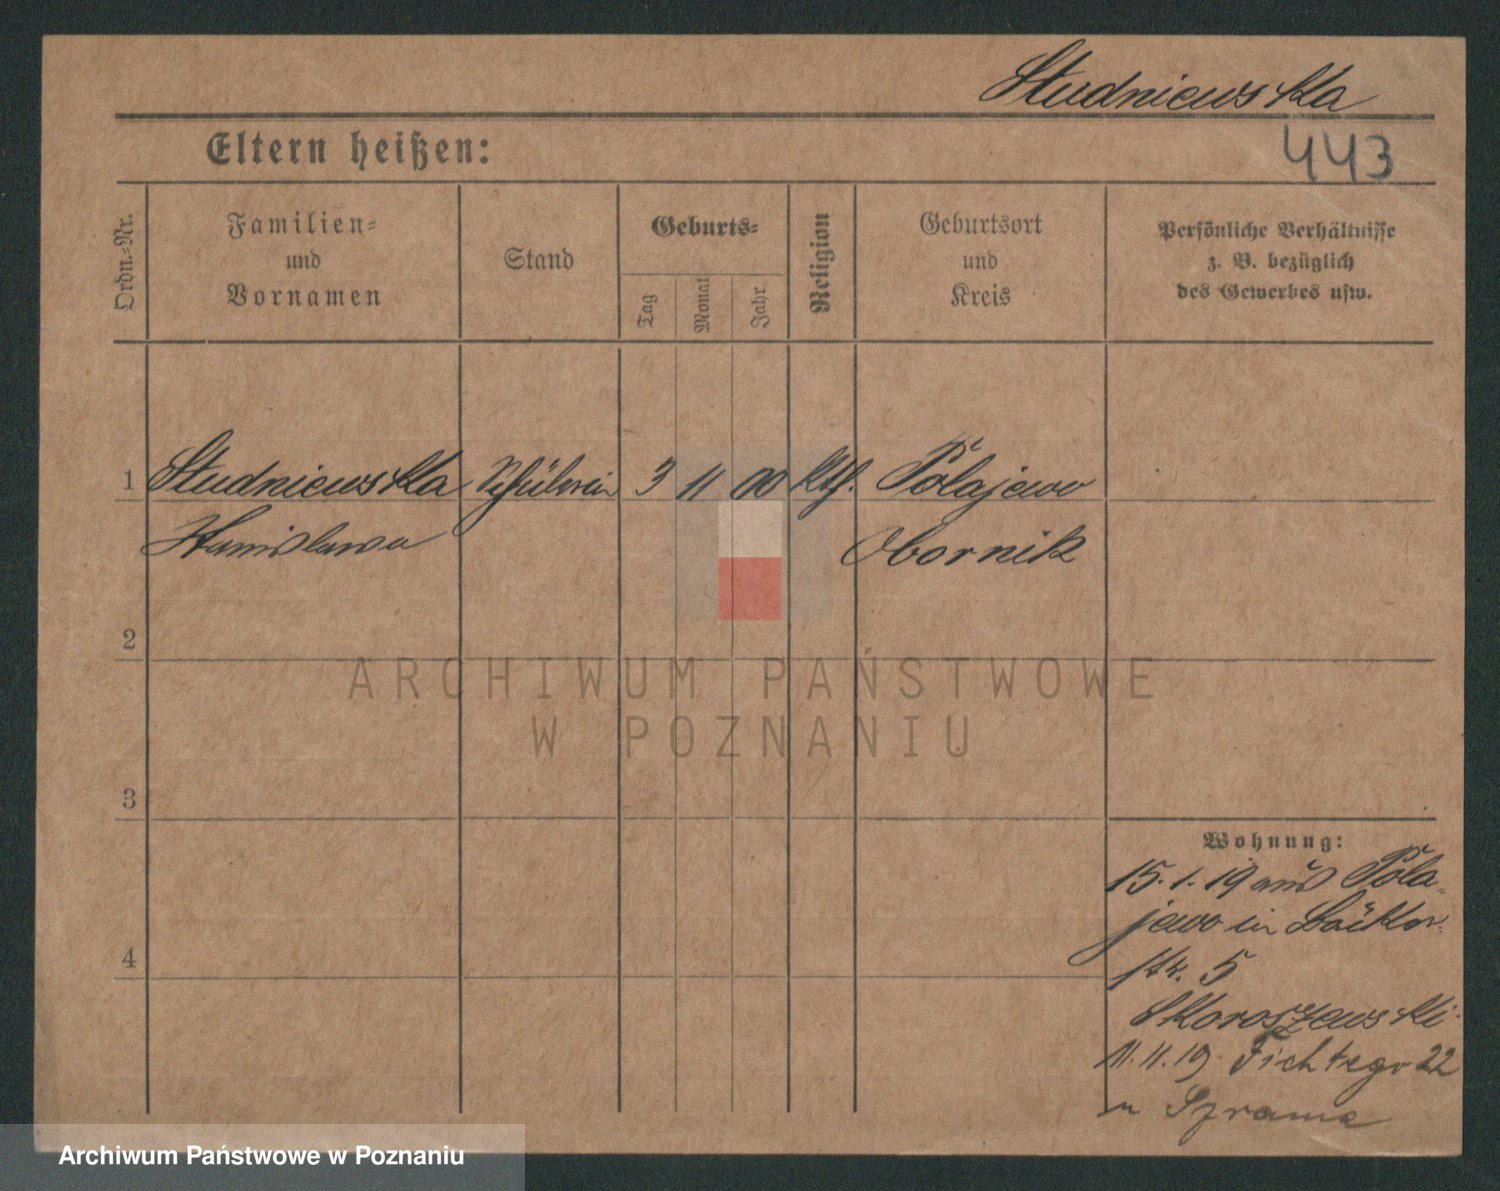 Studniewska
Eltern heißen:
443
Ordn.-Nr.
Familien-
und
Vornamen
Stand
Geburts-
Tag
Monat
Jahr
Religion
Geburtsort
und
Kreis
Persönliche Verhältnisse
z. B. bezüglich
des Gewerbes usw.
1 Studniewska Schülerin 3 11 00 kth. Polajewo
Stanislawa Obornik
2
3
4
Wohnung:
15.1.19 aus Pola-
jewo in
str. 5
Skoroszewski
11.11.19. Fichtego 22
u Szrama
ARCHIWUM PAŃSTWOWE
W POZNANIU
Archiwum Państwowe w Poznaniu